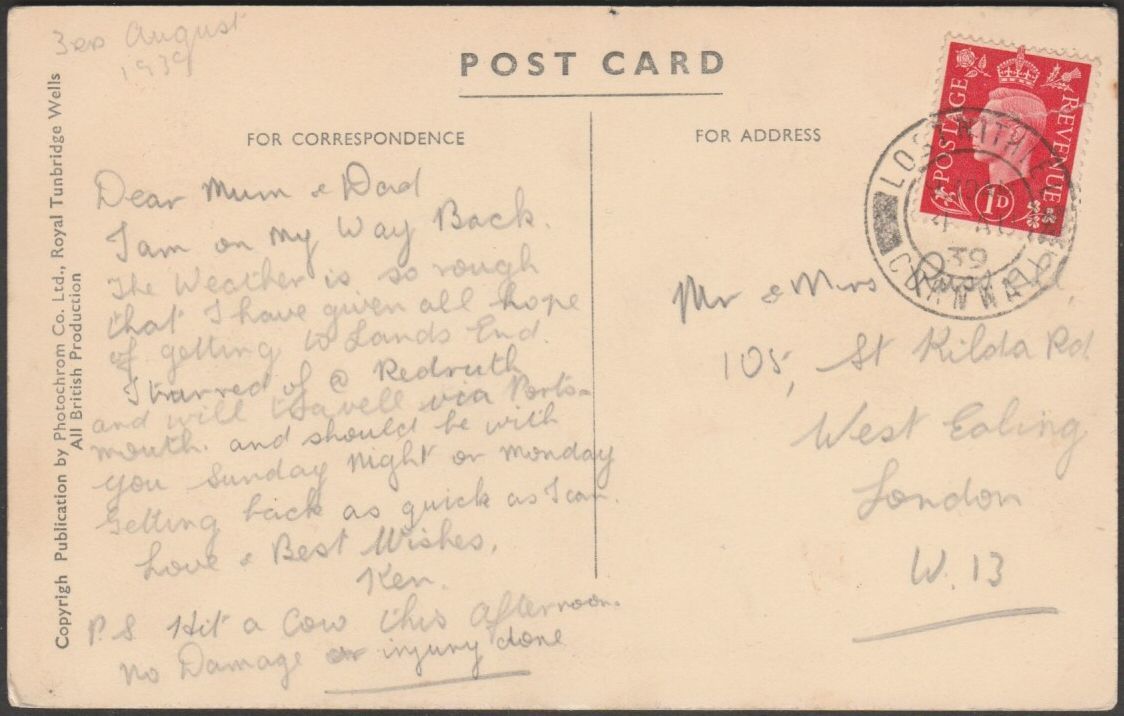 3RD August
1939
POST CARD
FOR CORRESPONDENCE
Dear Mum & Dad
I am on my Way Back.
The Weather is so rough
that I have given all hope
of getting to Lands End.
I turred of @ Redruth
and will travell via Ports-
mouth. and should be with
you Sunday Night or Monday
Getting back as quick as I can.
Love & Best Wishes,
Ken.
P.S Hit a Cow this afternoon.
No Damage or injury done
Copyrigh Publication by Photochrom Co. Ltd., Royal Tunbridge Wells
All British Production
FOR ADDRESS
POSTAGE
REVENUE
1D
LOSTWITHIEL
4 AU
39
CORNWALL
Mr & Mrs
105, St Kilda Rd
West Ealing
London
W. 13